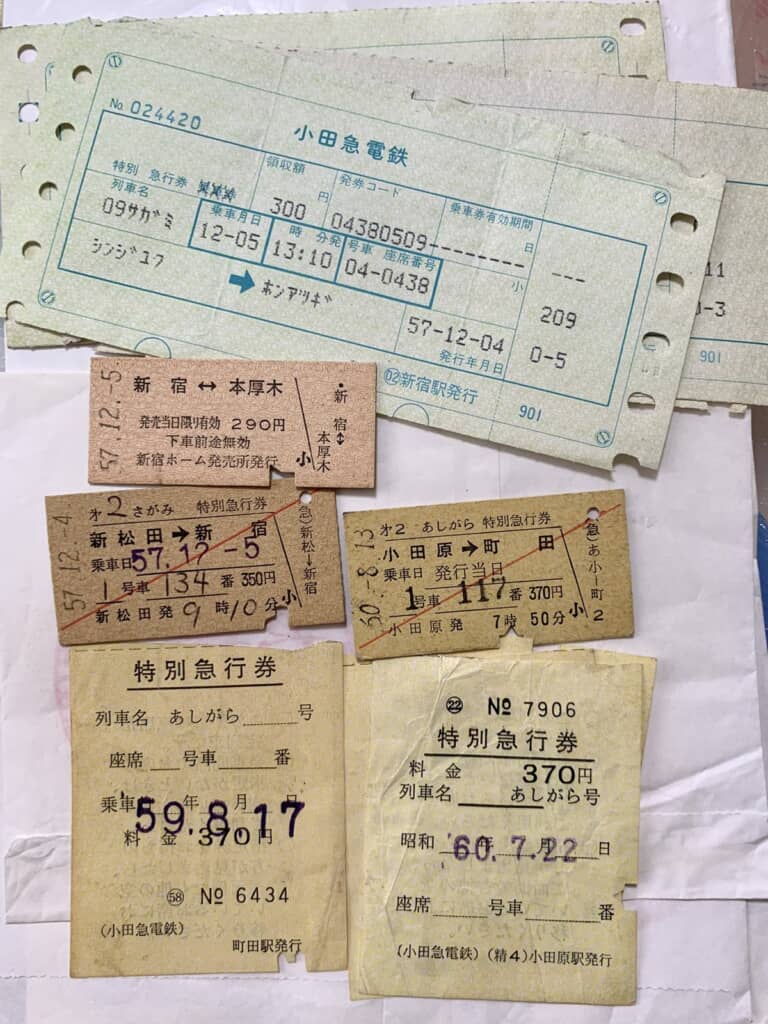 No. 024420
小田急電鉄
特別 急行券
領収額
発券コード
乗車券有効期間
列車名
300 円
04380509--------
日
---
09サガミ
乗車月日
時 分発
号車 座席番号
12-05
13:10
04-0438
小
209
シンジユク
➡ ホンアツギ
57-12-04
0-5
発行年月日
02新宿駅発行
901
11
0-3
901
新宿↔本厚木
発売当日限り有効 290円
下車前途無効
新宿ホーム発売所発行
小
新宿↔本厚木
57.12.-5
57.12.-4
才2さがみ 特別急行券
新松田→新宿
乗車日 57.12-5
1号車 134番 350円
新松田発 9時10分
小
急 新松→新宿
60.-8.13
才2 あしがら 特別急行券
小田原→町田
乗車日 発行当日
1号車 117番 370円
小田原発 7時50分
小
急 あ小─町
2
特別急行券
列車名 あしがら 号
座席 号車 番
乗車 年 月 日
59.8.17
料金 370円
58 № 6434
(小田急電鉄)
町田駅発行
22 № 7906
特別急行券
料金 370円
列車名 あしがら号
昭和 年 月 日
60.7.22
座席 号車 番
(小田急電鉄) (精4)小田原駅発行